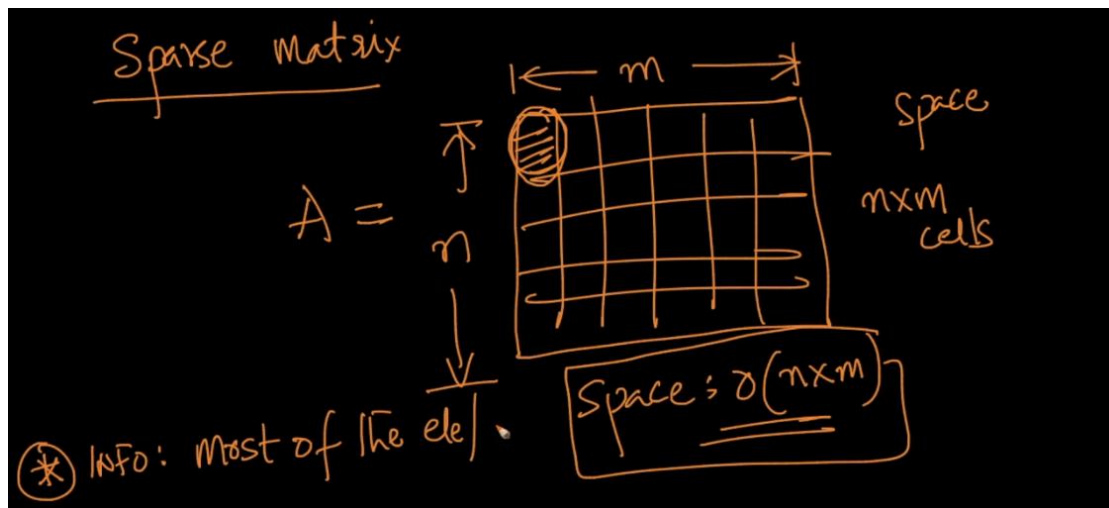 Sparse matrix
m
space
A =
n
nxm
cells
Space: O(nxm)
* INFO: Most of the ele